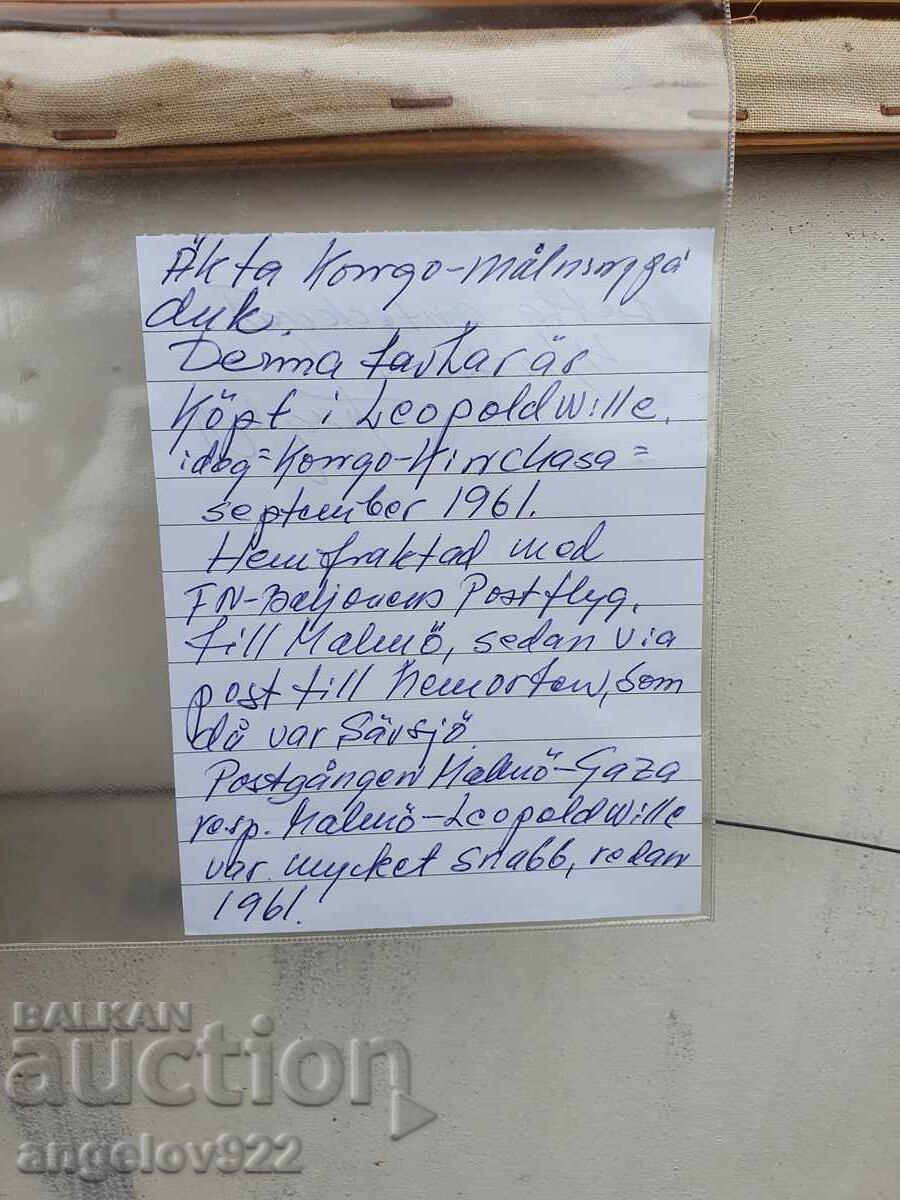 Äkta Kongo-målning på
duk.
Denna tavlar är
Köpt i Leopoldwille.
idag=Kongo-Kinchasa=
september 1961.
Hemfraktad med
FN-Baljonens Postflyg.
till Malmö, sedan via
post till hemorten, som
då var Sävsjö.
Postgången Malmö-Gaza
resp. Malmö-Leopoldwille
var mycket snabb, redan
1961.
BALKAN
auction
angelov922